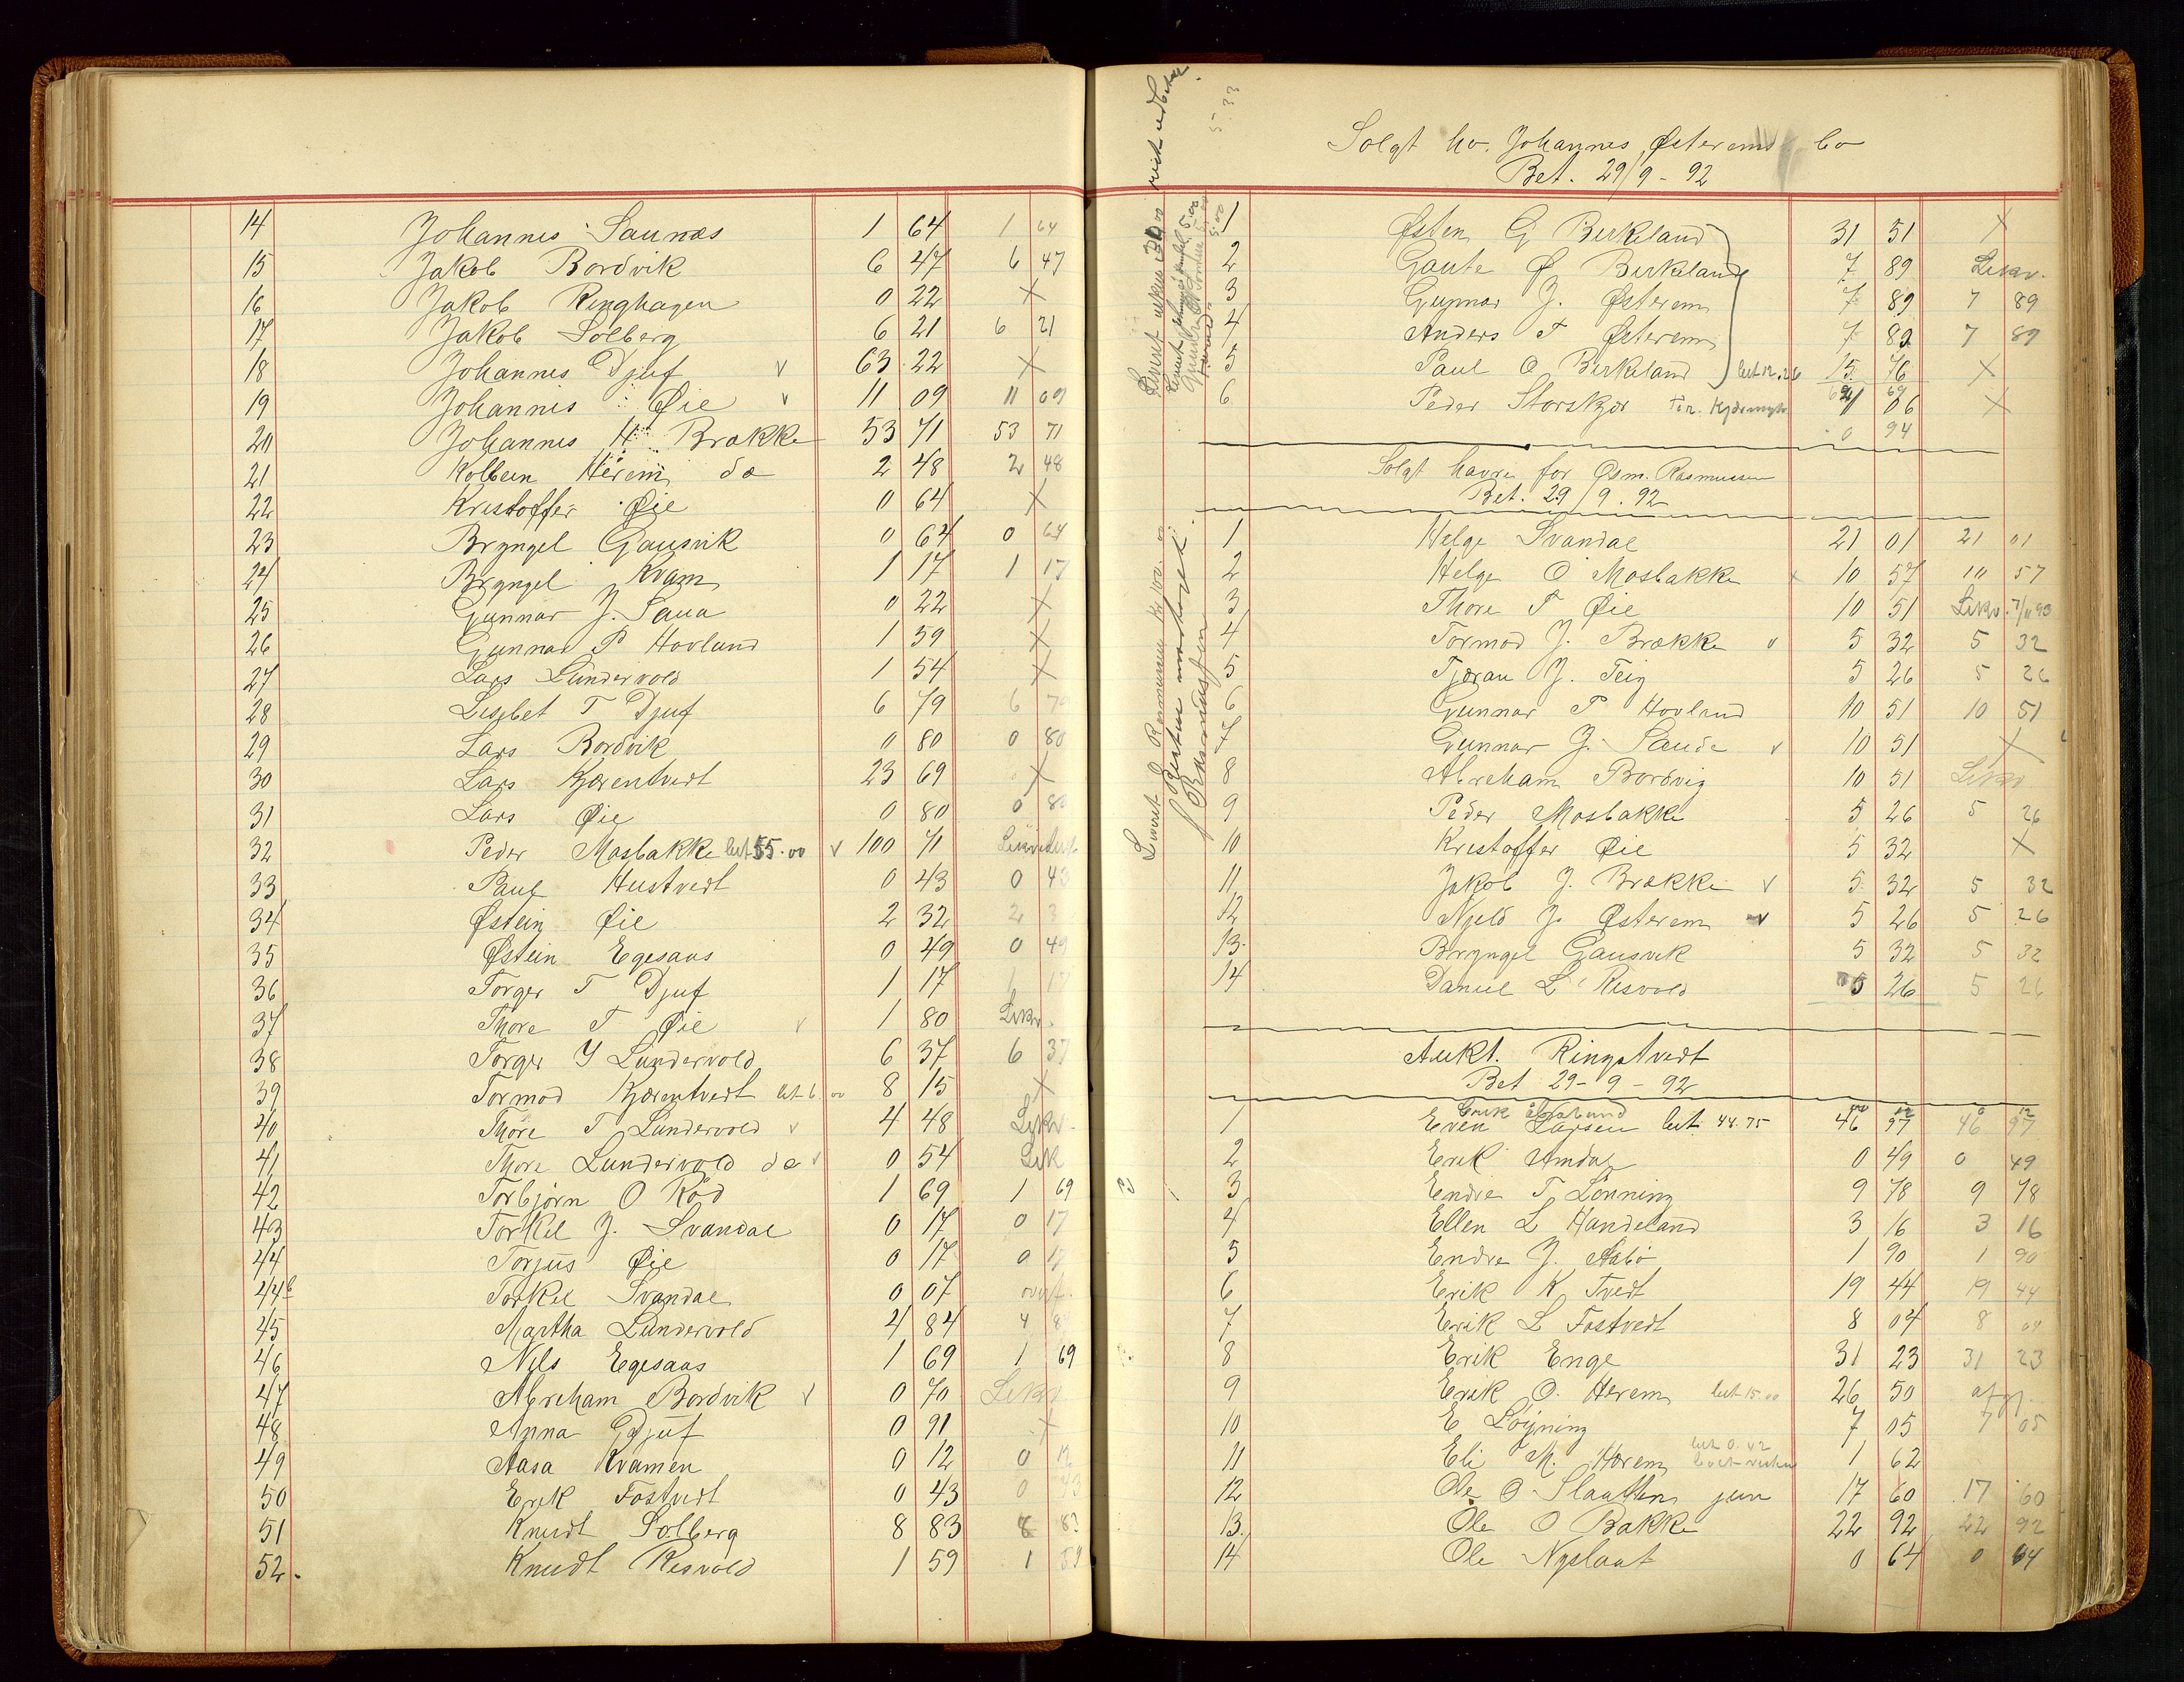 14 Johannes Saunæs 1 64 1 64
15 Jakob Bordvik 6 47 6 47
16 Jakob Ringhagen 0 22 X
17 Jakob Solberg 6 21 6 21
18 Johannes Djuf v 63 22 X
19 Johannes Øie v 11 09 11 09
20 Johannes H Brække 53 71 53 71
21 Kolbein Herem do 2 48 2 48
22 Kristoffer Øie 0 64 X
23 Bryngel Gausvik 0 64 0 64
24 Bryngel Kvam 1 17 1 17
25 Gunnar J. Saua 0 22 X
26 Gunnar P Hovland 1 59 X
27 Lars Lundervold 1 54 X
28 Lisebet T Djuf 6 79 6 79
29 Lars Bordvik 0 80 0 80
30 Lars Kjærentvedt 23 69 X
31 Lars Øie 0 80 0 80
32 Peder Mosbakke bet 55.00 v 100 71
33 Paul Hustvedt 0 43 0 43
34 Østein Øie 2 32 2 3
35 Østein Egesaas 0 49 0 49
36 Torger T Djuf 1 17 1 17
37 Thore T Øie v 1 80 Likv.
38 Torger Y Lundervold 6 37 6 37
39 Tormod Kjærentvedt bet 6.00 8 15 X
40 Thore T Lundervold v 4 48 Likv.
41 Thore Lundervold do v 0 54 Lik
42 Torbjørn O Rød 1 69 1 69
43 Torkel J. Svandal 0 17 0 17
44 Torjus Øie 0 17 0 17
44b Torkel Svandal 0 07 overf.
45 Martha Lundervold 4 84 4 84
46 Nils Egesaas 1 69 1 69
47 Abreham Bordvik v 0 70 Likv.
48 Anna G Djuf 0 91 X
49 Aasa Kvamen 0 12 0 12
50 Erik Fostvedt 0 43 0 43
51 Knudt Solberg 8 83 8 83
52. Knudt Risvold 1 59 1 59
Solgt ho. Johannes Østerems bo
Bet. 29/9 - 92
1 Østen G Birkeland 31 51 X
2 Gaute Ø Birkeland 7 89 Likv.
3 Gunnar J. Østerem 7 89 7 89
4 Anders T Østerem 7 89 7 89
5 Paul O Birkeland bet 12.26 15 76 X
6 Peder Storskjær 06 X
0 94
Solgt havre for Osm. Rasmussen
Bet. 29/9. 92
1 Helge Svandal 21 01 21 01
2 Helge O Mosbakke x 10 57 10 57
3 Thore T Øie 10 51 Likv. 7/11 93
4 Tormod J. Brække v 5 32 5 32
5 Tjøran J. Teig 5 26 5 26
6 Gunnar P Hovland 10 51 10 51
7 Gunnar J. Saude v 10 51 X
8 Abreham Bordvig 10 51 Likv
9 Peder Mosbakke 5 26 5 26
10 Kristoffer Øie 5 32 X
11 Jakob J. Brække v 5 32 5 32
12 Njeld J. Østerem v 5 26 5 26
13. Bryngel Gausvik 5 32 5 32
14 Daniel L Risvold 5 26 5 26
Aukt. Ringstvedt
Bet 29-9-92
1 Even Larsen bet. 44.75 46 97 46 97
2 Erik Amdal 0 49 0 49
3 Endre T. Lønning 9 78 9 78
4 Ellen L Handeland 3 16 3 16
5 Endre J. Aabø 1 90 1 90
6 Erik K Tvedt 19 44 19 44
7 Erik L Fostvedt 8 04 8 04
8 Erik Enge 31 23 31 23
9 Erik O. Herem bet 15.00 26 50 afgj.
10 E Løining 7 05 7 05
11 Eli M. Hærem bet 0.42 1 62
12 Ole O Slaatten jun 17 60 17 60
13. Ole O Bakke 22 92 22 92
14 Ole Nyslaat 0 64 0 64